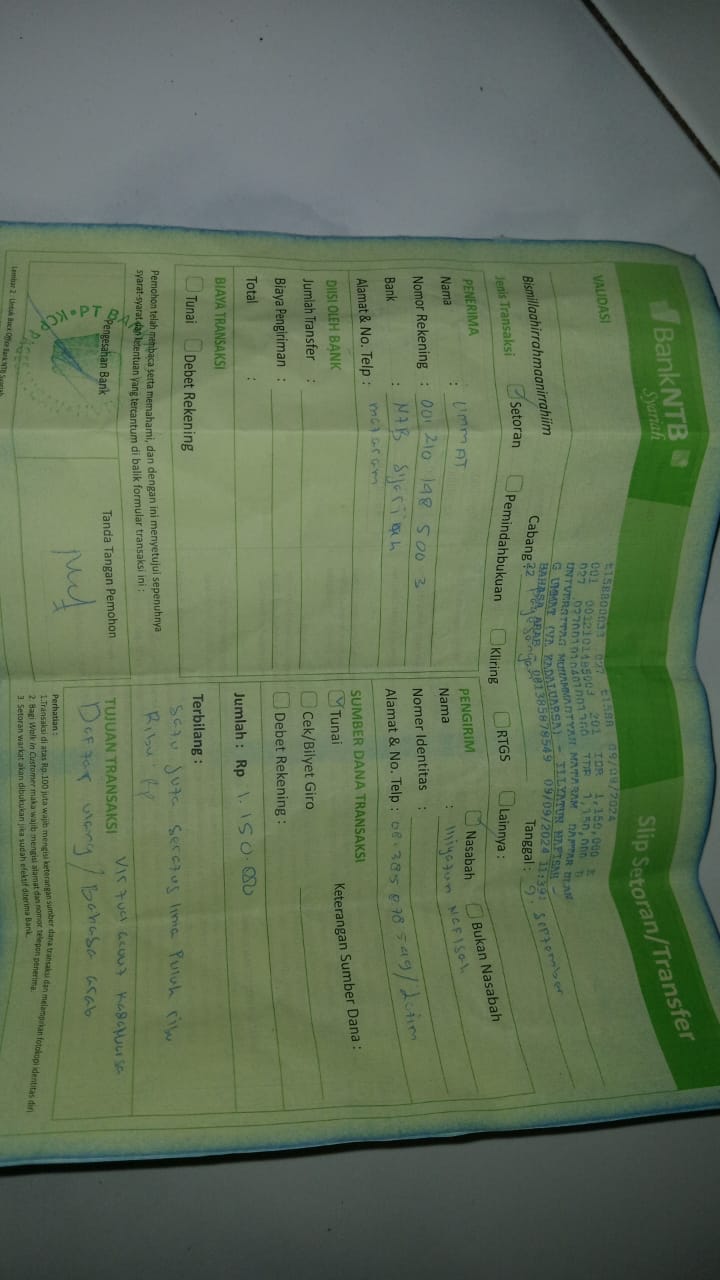 BankNTB
Syariah
Slip Setoran/Transfer
VALIDASI
09/09/2024
1,150,000
UNIVERSITAS MUHAMMADIYAH MATARAM DAFTAR ULAN
G UMMAT (VA KADALUARSA) -
BAHASA ARAB - 081385878549 09/09/2024 11:39:
22
Bismillaahirrahmaanirrahiim
Cabang :
Tanggal : 9, September
Jenis Transaksi
Setoran
Pemindahbukuan
Kliring
RTGS
Lainnya :
PENERIMA
Nama : UMMAT
Nomor Rekening : 001 210 148 500 3
Bank : NTB Syariah
Alamat & No. Telp : mataram
PENGIRIM
Nasabah
Bukan Nasabah
Nama :
Nomer Identitas :
Alamat & No. Telp :
DIISI OLEH BANK
Jumlah Transfer :
Biaya Pengiriman :
Total :
SUMBER DANA TRANSAKSI
Keterangan Sumber Dana :
Tunai
Cek/Bilyet Giro
Debet Rekening :
BIAYA TRANSAKSI
Tunai
Debet Rekening
Jumlah : Rp 1.150.000
Terbilang :
Satu juta seratus lima puluh ribu
Ribu Rp
Pemohon telah membaca serta memahami, dan dengan ini menyetujui sepenuhnya
syarat-syarat dan ketentuan yang tercantum di balik formular transaksi ini :
Pengesahan Bank
Tanda Tangan Pemohon
TUJUAN TRANSAKSI
Daftar ulang / Bahasa arab
Perhatian :
1.Transaksi di atas Rp.100 juta wajib mengisi keterangan sumber dana transaksi dan melampirkan fotokopi identitas diri.
2. Bagi Walk in Customer maka wajib mengisi alamat dan nomor telepon penerima.
3. Setoran warkat akan dibukukan jika sudah efektif diterima Bank.
Lembar 2 : Untuk Back Office Bank NTB Syariah